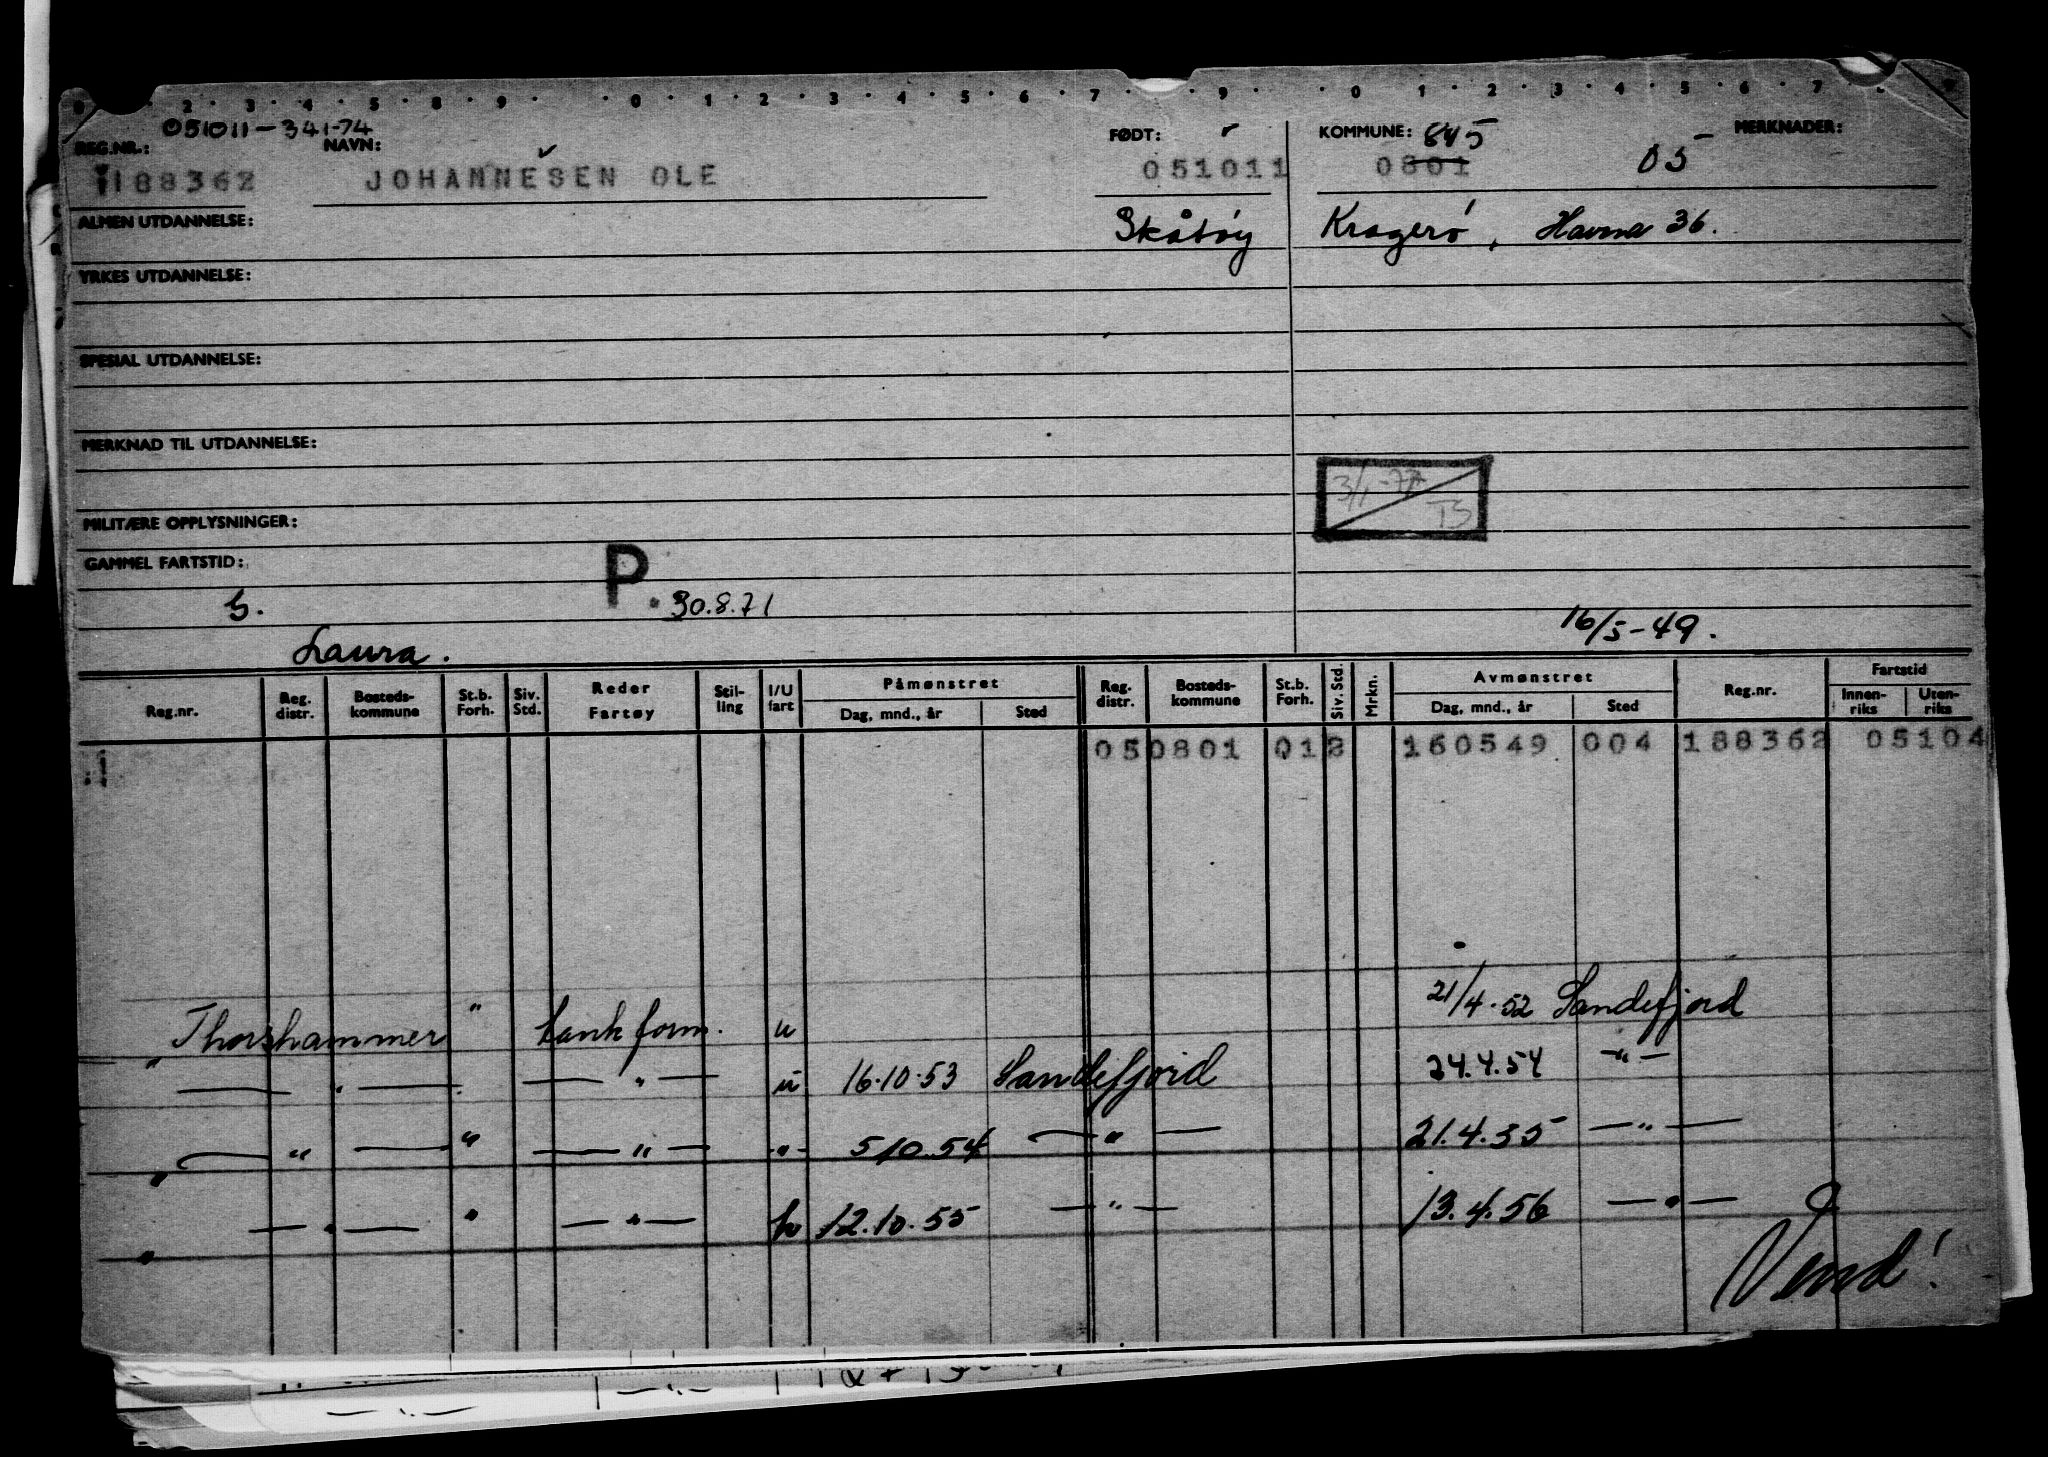 2 3 4 5 8 9 0 1 2 3 4 5 6 7 9 0 1 2 3 4 5 6 7
051011-341-74
REG.NR.: NAVN: FØDT: KOMMUNE: 845 MERKNADER:
188362 JOHANNESEN OLE 051011 0801 05
ALMEN UTDANNELSE: Skåtøy Kragerø, Havna 36.
YRKES UTDANNELSE:
SPESIAL UTDANNELSE:
MERKNAD TIL UTDANNELSE:
3/1-77
TS
MILITÆRE OPPLYSNINGER:
GAMMEL FARTSTID:
P. 30.8.71
16/5-49.
Laura.
Reg.nr. Reg. distr. Bosteds- kommune St.b. Forh. Siv. Std. Reder Fartøy Stil- ling I/U fart Påmønstret Dag, mnd., år Sted Reg. distr. Bosteds- kommune St.b. Forh. Siv. Std. Mrkn. Avmønstret Dag, mnd., år Sted Reg.nr. Fartstid Innen- riks Uten- riks
050801 012 160549 004 188362 05104
21/4.52 Sandefjord
Thorshammer " tank form. u
" — " — — " — u 16.10.53 Sandefjord 24.4.54 — " —
— " — " — " — " 5.10.54 — " — 21.4.55 — " —
" — " — " — " — u 12.10.55 — " — 13.4.56 — " —
" Vend!